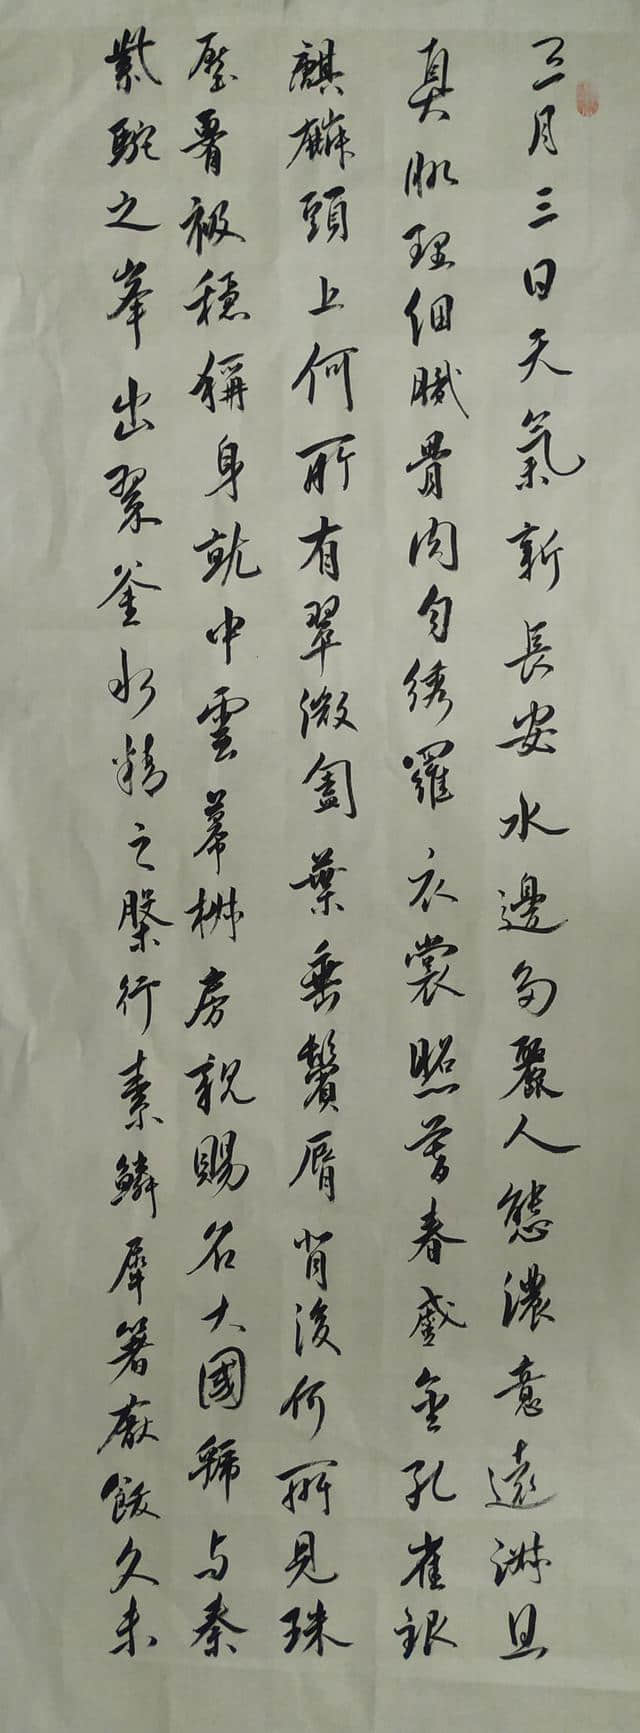 三月三日天氣新長安水邊多麗人態濃意遠淑且
真肌理細膩骨肉勻綉羅衣裳照暮春蹙金孔雀銀
麒麟頭上何所有翠微㔩葉垂鬢脣背後何所見珠
壓腰衱穩稱身就中雲幕椒房親賜名大國虢与秦
紫駝之峯出翠釜水精之槃行素鱗犀箸厭飫久未